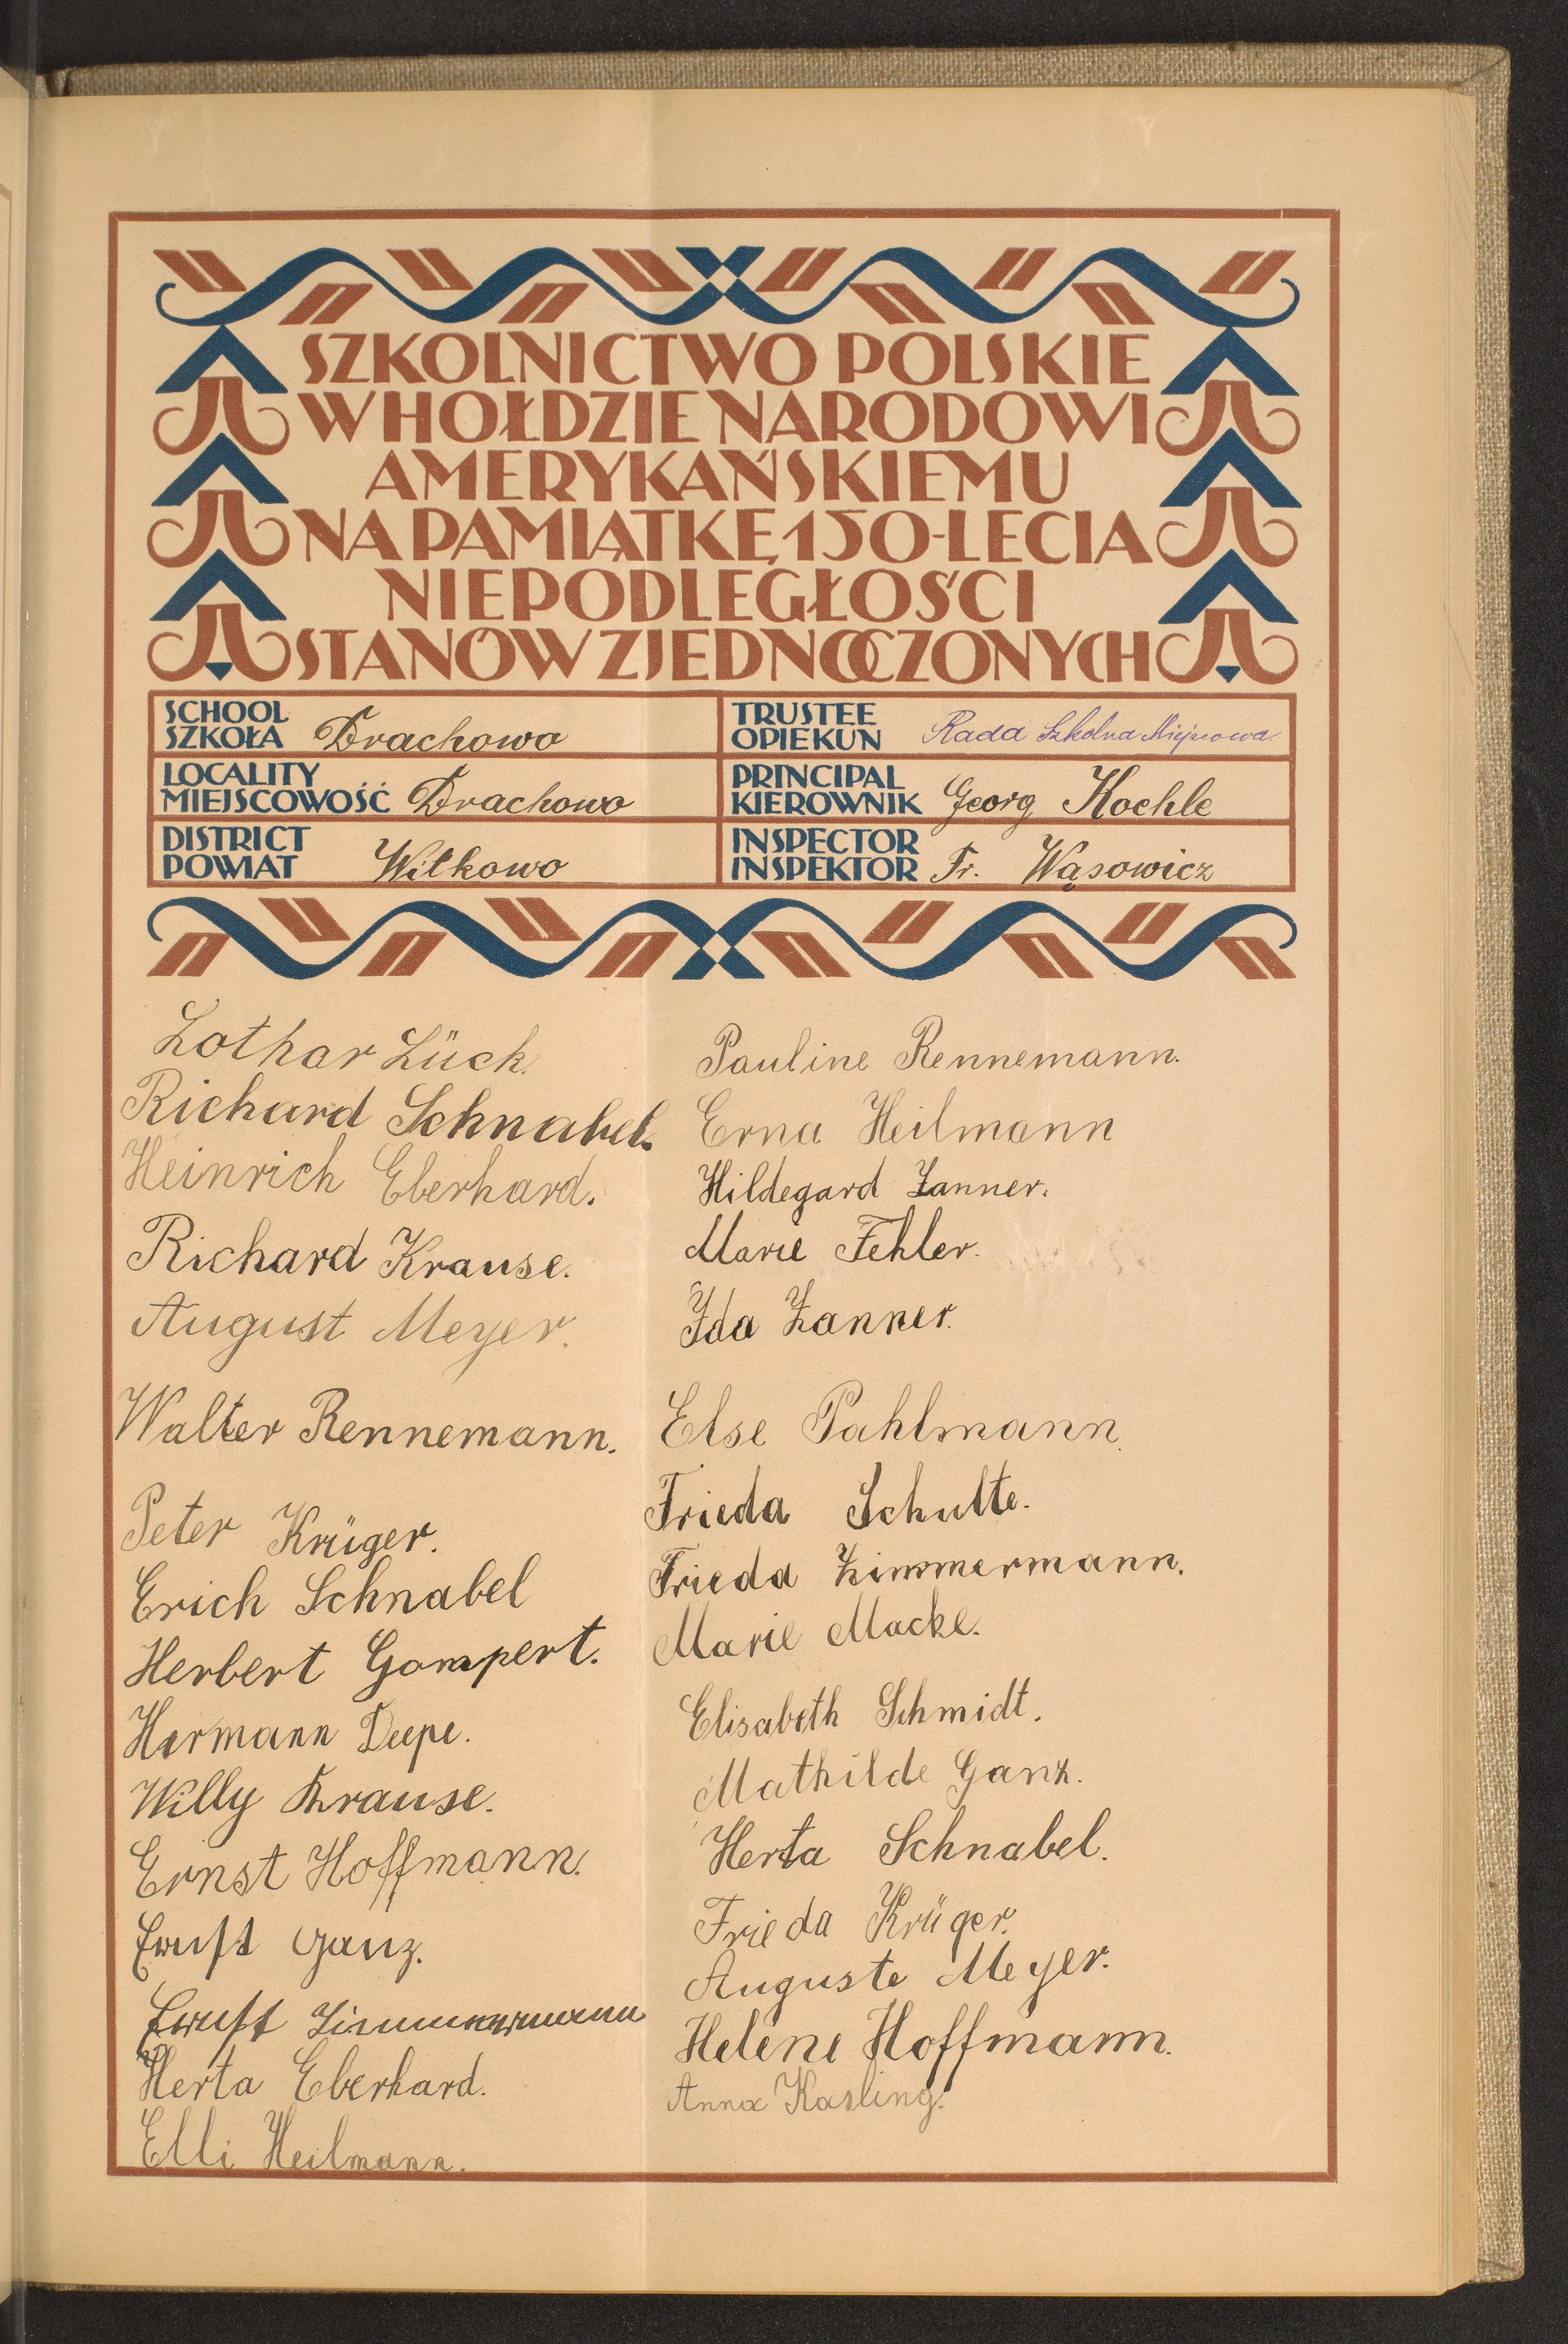 SZKOLNICTWO POLSKIE
W HOŁDZIE NARODOWI
AMERYKAŃSKIEMU
NA PAMIĄTKĘ 150-LECIA
NIEPODLEGŁOŚCI
STANÓW ZJEDNOCZONYCH
SCHOOL
SZKOŁA Drachowo
TRUSTEE
OPIEKUN Rada Szkolna Miejscowa
LOCALITY
MIEJSCOWOŚĆ Drachowo
PRINCIPAL
KIEROWNIK Georg Koehle
DISTRICT
POWIAT Witkowo
INSPECTOR
INSPEKTOR Fr. Wąsowicz
Lothar Lück.
Richard Schnabel.
Heinrich Eberhard.
Richard Krause.
August Meyer.
Walter Rennemann.
Peter Krüger.
Erich Schnabel
Herbert Gompert.
Hermann Deepe.
Willy Krause.
Ernst Hoffmann.
Ernst Ganz.
Ernst Zimmermann
Herta Eberhard.
Elli Heilmann.
Pauline Rennemann.
Erna Heilmann
Hildegard Zanner.
Marie Fehler.
Ida Zanner.
Else Pahlmann.
Frieda Schulte.
Frieda Zimmermann.
Marie Macke.
Elisabeth Schmidt.
Mathilde Ganz.
Herta Schnabel.
Frieda Krüger.
Auguste Meyer.
Helene Hoffmann.
Anna Kasling.